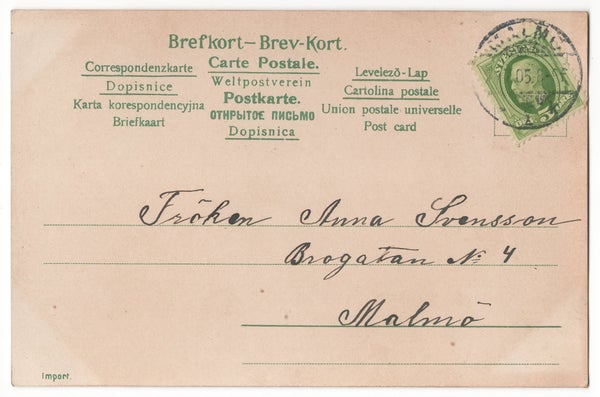 Brefkort–Brev-Kort.
Carte Postale.
Correspondenzkarte
Weltpostverein
Levelező-Lap
Dopisnice
Postkarte.
Cartolina postale
Karta korespondencyjna
ОТКРЫТОЕ ПИСЬМО
Union postale universelle
Briefkaart
Dopisnica
Post card
Fröken Anna Svensson
Brogatan No 4
Malmö
Import.